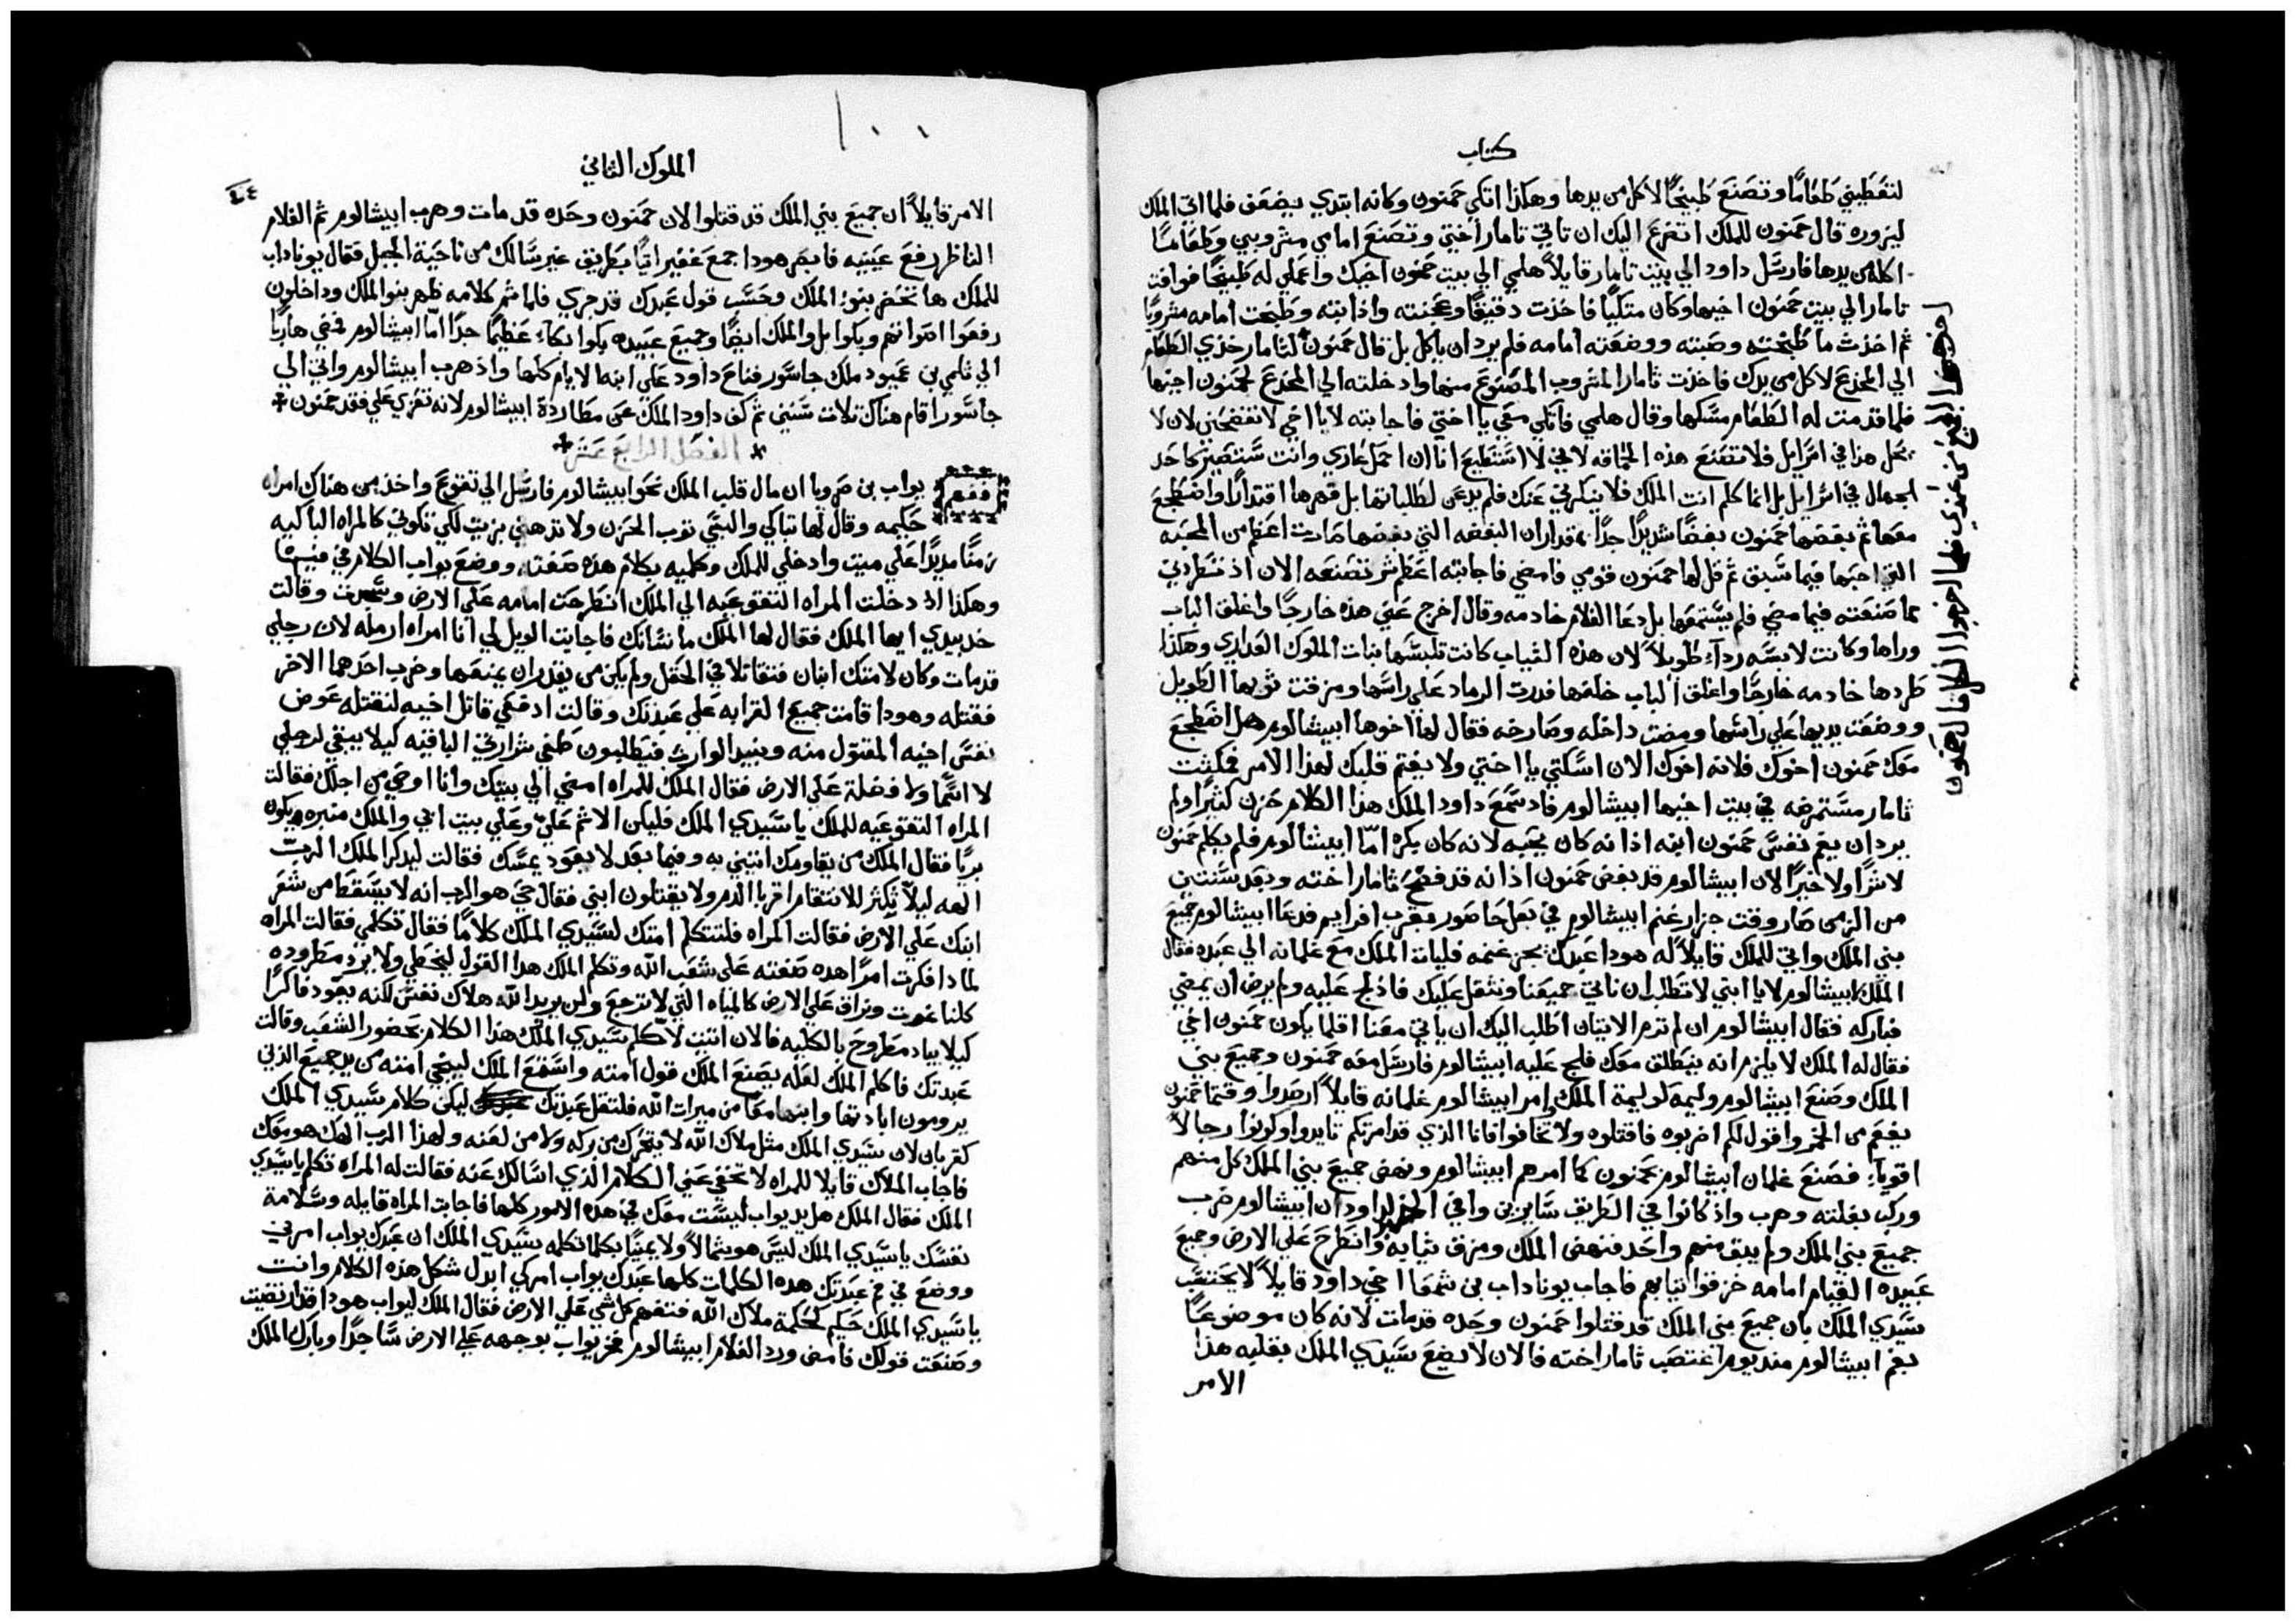 كتاب
لتعطيني طعامًا وتصنع طبيخًا لاكل من يدها وهكذا اتكي حمنون وكانه ابتدي يضعف فلما اتي الملك
ليزوره قال حمنون للملك اتضرع اليك ان تاتي تامار اختي وتصنع امامي مشروبي وطعامًا
اكله من يدها فارسل داود الي بيت تامار قايلاً هلمي الي بيت حمنون اخيك واعملي له طبيخًا فوافت
تامار الي بيت حمنون اخيها وكان متكيًا فاخذت دقيقًا وعجنته واذابته وطبخت امامه مشروبًا
ثم اخذت ما طبخته وصبته ووضعته امامه فلم يرد ان ياكل بل قال حمنون لثامار خذي الطعام
الي المخدع لاكل من يدك فاخذت ثامار المشروب المصنوع منها وادخلته الي المخدع لحمنون اخيها
فلما قدمت له الطعام مسكها وقال هلمي فاتكي معي يا اختي فاجابته لا يا اخي لا تفضحني لان لا
يحل هذا في اسرايل فلا تصنع هذه الحماقه لاني لا استطيع انا ان احمل عاري وانت ستصير كاحد
الجهال في اسرايل بل انما كلم انت الملك فلا ينكرني عنك فلم يدعن لطلباتها بل قهرها اقتدارًا واضطجع
معها ثم بغضها حمنون بغضًا شديدًا جدًا بمقدار ان البغضه التي بغضها صارت اعظم من المحبه
التي احبها فيما سبق ثم قال لها حمنون قومي فامضي فاجابته اعظم شر تصنعه الان اذ تطردني
مما صنعته فيما مضي فلم يستمعها بل دعا الغلام خادمه وقال اخرج عني هذه خارجًا واغلق الباب
وراها وكانت لابسه رداء طويلاً لان هذه الثياب كانت تلبسها بنات الملوك العذاري وهكذا
طردها خادمه خارجًا واغلق الباب خلفها فدرت الرماد علي راسها ومزقت ثوبها الطويل
ووضعت يديها علي راسها ومضت داخله وصارخه فقال لها اخوها ابيشالوم هل اضطجع
معك حمنون اخوك فلانه اخوك الان اسكتي يا اختي ولا يغتم قلبك لهذا الامر فمكثت
ثامار مستمرضه في بيت اخيها ابيشالوم فاذ سمع داود الملك هذا الكلام حزن كثيرًا ولم
يرد ان يغم نفس حمنون ابنه اذ انه كان يحبه لانه كان بكره امّا ابيشالوم فلم يكلم حمنون
لا شرًا ولا خيرًا لان ابيشالوم قد بغض حمنون اذ انه قد فضح ثامار اخته وبعد سنتين
من الزمن صار وقت جزار غنم ابيشالوم في بعل حاصور بقرب افرايم فدعا ابيشالوم جميع
بني الملك واتي للملك قايلاً له هودا عبدك يجز غنمه فليات الملك مع غلمانه الي عبده فقال
الملك لابيشالوم لا يا ابني لا تطلب ان ناتي جميعنا ونثقل عليك فاذ لج عليه ولم يرض ان يمضي
فباركه فقال ابيشالوم ان لم ترم الاتيان اطلب اليك ان ياتي معنا اقلما يكون حمنون اخي
فقال له الملك لا يلزم انه ينطلق معك فلج عليه ابيشالوم فارسل معه حمنون وجميع بني
الملك وصنع ابيشالوم وليمه كوليمة الملك وامر ابيشالوم غلمانه قايلاً ارصدوا وقتما حمنون
يفعم من الخمر واقول لكم اضربوه فاقتلوه ولا تخافوا فانا الذي قد امرتكم تايدوا وكونوا رجالاً
اقوياء فصنع غلمان ابيشالوم بحمنون كما امرهم ابيشالوم ونهض جميع بني الملك كل منهم
وركب بغلته وهرب واذ كانوا في الطريق سايرين وافي الخبر لداود ان ابيشالوم ضرب
جميع بني الملك ولم يبق منهم واحد فنهض الملك ومزق ثيابه وانطرح علي الارض وجميع
عبيده القيام امامه خرقوا ثيابهم فاجاب يوناداب بن شمعا اخي داود قايلاً لا يحتسب
سيدي الملك بان جميع بني الملك قد قتلوا حمنون وحده قد مات لانه كان موضوعًا
بغم ابيشالوم منذ يوم اغتصب ثامار اخته فالان لا يضع سيدي الملك بقلبه هذا
الامر
اخرجوا الجميع من عندي فلما اخرجوا الجميع قال حمنون
١٠٠
الملوك الثاني
٤٤
الامر قايلاً ان جميع بني الملك قد قتلوا لان حمنون وحده قد مات وهرب ابيشالوم ثم الغلام
الناظر رفع عينيه فابصر هودا جمع غفير اتيًا بطريق غير سالك من ناحية الجبل فقال يوناداب
للملك ها تحضر بنو الملك وحسب قول عبدك قد جري فلما تم كلامه ظهر بنو الملك وداخلون
رفعوا اصواتهم وبكوا بل والملك ايضًا وجميع عبيده بكوا بكاء عظيمًا جدًا امّا ابيشالوم فمضي هاربًا
الي تلمي بن عميود ملك جاسور فناح داود علي ابنه الايام كلها واذ هرب ابيشالوم واتي الي
جاسور اقام هناك ثلاث سنين ثم كف داود الملك عن مطاردة ابيشالوم لانه تعزي علي فقد حمنون
الفصل الرابع عشر
ففهم يواب بن صرويا ان مال قلب الملك نحو ابيشالوم فارسل الي تقوع واخذ من هناك امراه
حكيمه وقال لها تباكي والبسي ثوب الحزن ولا تدهني بزيت لكي تكوني كالمراه الباكيه
زمنًا مديدًا علي ميت وادخلي للملك وكلميه بكلام هذه صفته ووضع يواب الكلام في فيها
وهكذا اذ دخلت المراه التقوعيه الي الملك انطرحت امامه علي الارض وسجدت وقالت
خذ بيدي ايها الملك فقال لها الملك ما شانك فاجابت الويل لي انا امراه ارمله لان رجلي
قد مات وكان لامتك ابنان فتقاتلا في الحقل ولم يكن من يقدر ان يمنعهما وضرب احدهما الاخر
فقتله وهودا قامت جميع القرابه علي عبدتك وقالت ادفعي قاتل اخيه لنقتله عوض
نفس اخيه المقتول منه ونبيد الوارث فيطلبون طفي شرارتي الباقيه كيلا يبقي لرجلي
لا اسمًا ولا فضلة علي الارض فقال الملك للمراه امضي الي بيتك وانا اوصي من اجلك فقالت
المراه التقوعيه للملك يا سيدي الملك فليكن الاثم عليّ وعلي بيت ابي والملك منبره يكون
بريًا فقال الملك من يقاومك اتيني به وفيما بعد لا يعود يمسك فقالت ليذكر الملك الرب
الهه ليلاّ تكثر للانتقام اقربا الدم ولا يقتلون ابني فقال حي هو الرب انه لا يسقط من شعر
ابنك علي الارض فقالت المراه فلتتكلم امتك لسيدي الملك كلامًا فقال تكلمي فقالت المراه
لماذا فكرت امرًا هذه صفته علي شعب الله وتكلم الملك هذا القول ليخطي ولا يرد مطروده
كلنا نموت ونراق علي الارض كالمياه التي لا ترجع ولن يريد الله هلاك نفس لكنه يعود فاكرًا
كيلا يباد مطروح بالكليه فالان اتيت لاكلم سيدي الملك هذا الكلام بحضور الشعب وقالت
عبدتك فاكلم الملك لعله يصنع الملك قول امته واستمع الملك لينجي امته من يد جميع الذي
يرومون ابادتها وابنها معًا من ميراث الله فلتقل عبدتك ليكن كلام سيدي الملك
كقربان لان سيدي الملك مثل ملاك الله لا يتحرك من بركه ولا من لعنه ولهذا الرب الهك هو معك
فاجاب الملك قايلا للمراه لا تخفي عني الكلام الذي اسالك عنه فقالت له المراه تكلم يا سيدي
الملك فقال الملك هل يد يواب ليست معك في هذه الامور كلها فاجابت المراه قايله وسلامة
نفسك يا سيدي الملك ليس هو شمالاً ولا يمينًا بكلما تكلمه سيدي الملك ان عبدك يواب امرني
ووضع في فم عبدتك هذه الكلمات كلها عبدك يواب امر لكي ابدل شكل هذه الكلام وانت
يا سيدي الملك حكيم كحكمة ملاك الله فتفهم كل شي علي الارض فقال الملك ليواب هودا قد ارتضيت
وصنعت قولك فامض ورد الغلام ابيشالوم فخر يواب بوجهه علي الارض ساجدًا وبارك الملك